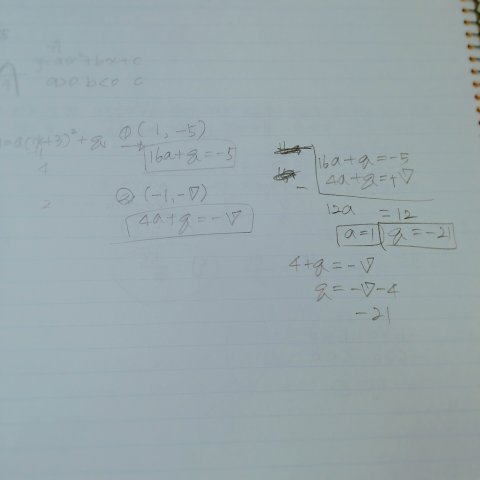 y=ax²+bx+c
a>0 b<0 c
=a(x+3)²+q ① (1, -5)
4 16a+q=-5
② (-1, -17)
2 4a+q=-17
16a+q=-5
- 4a+q=+17
12a =12
a=1 q=-21
4+q=-17
q=-17-4
-21